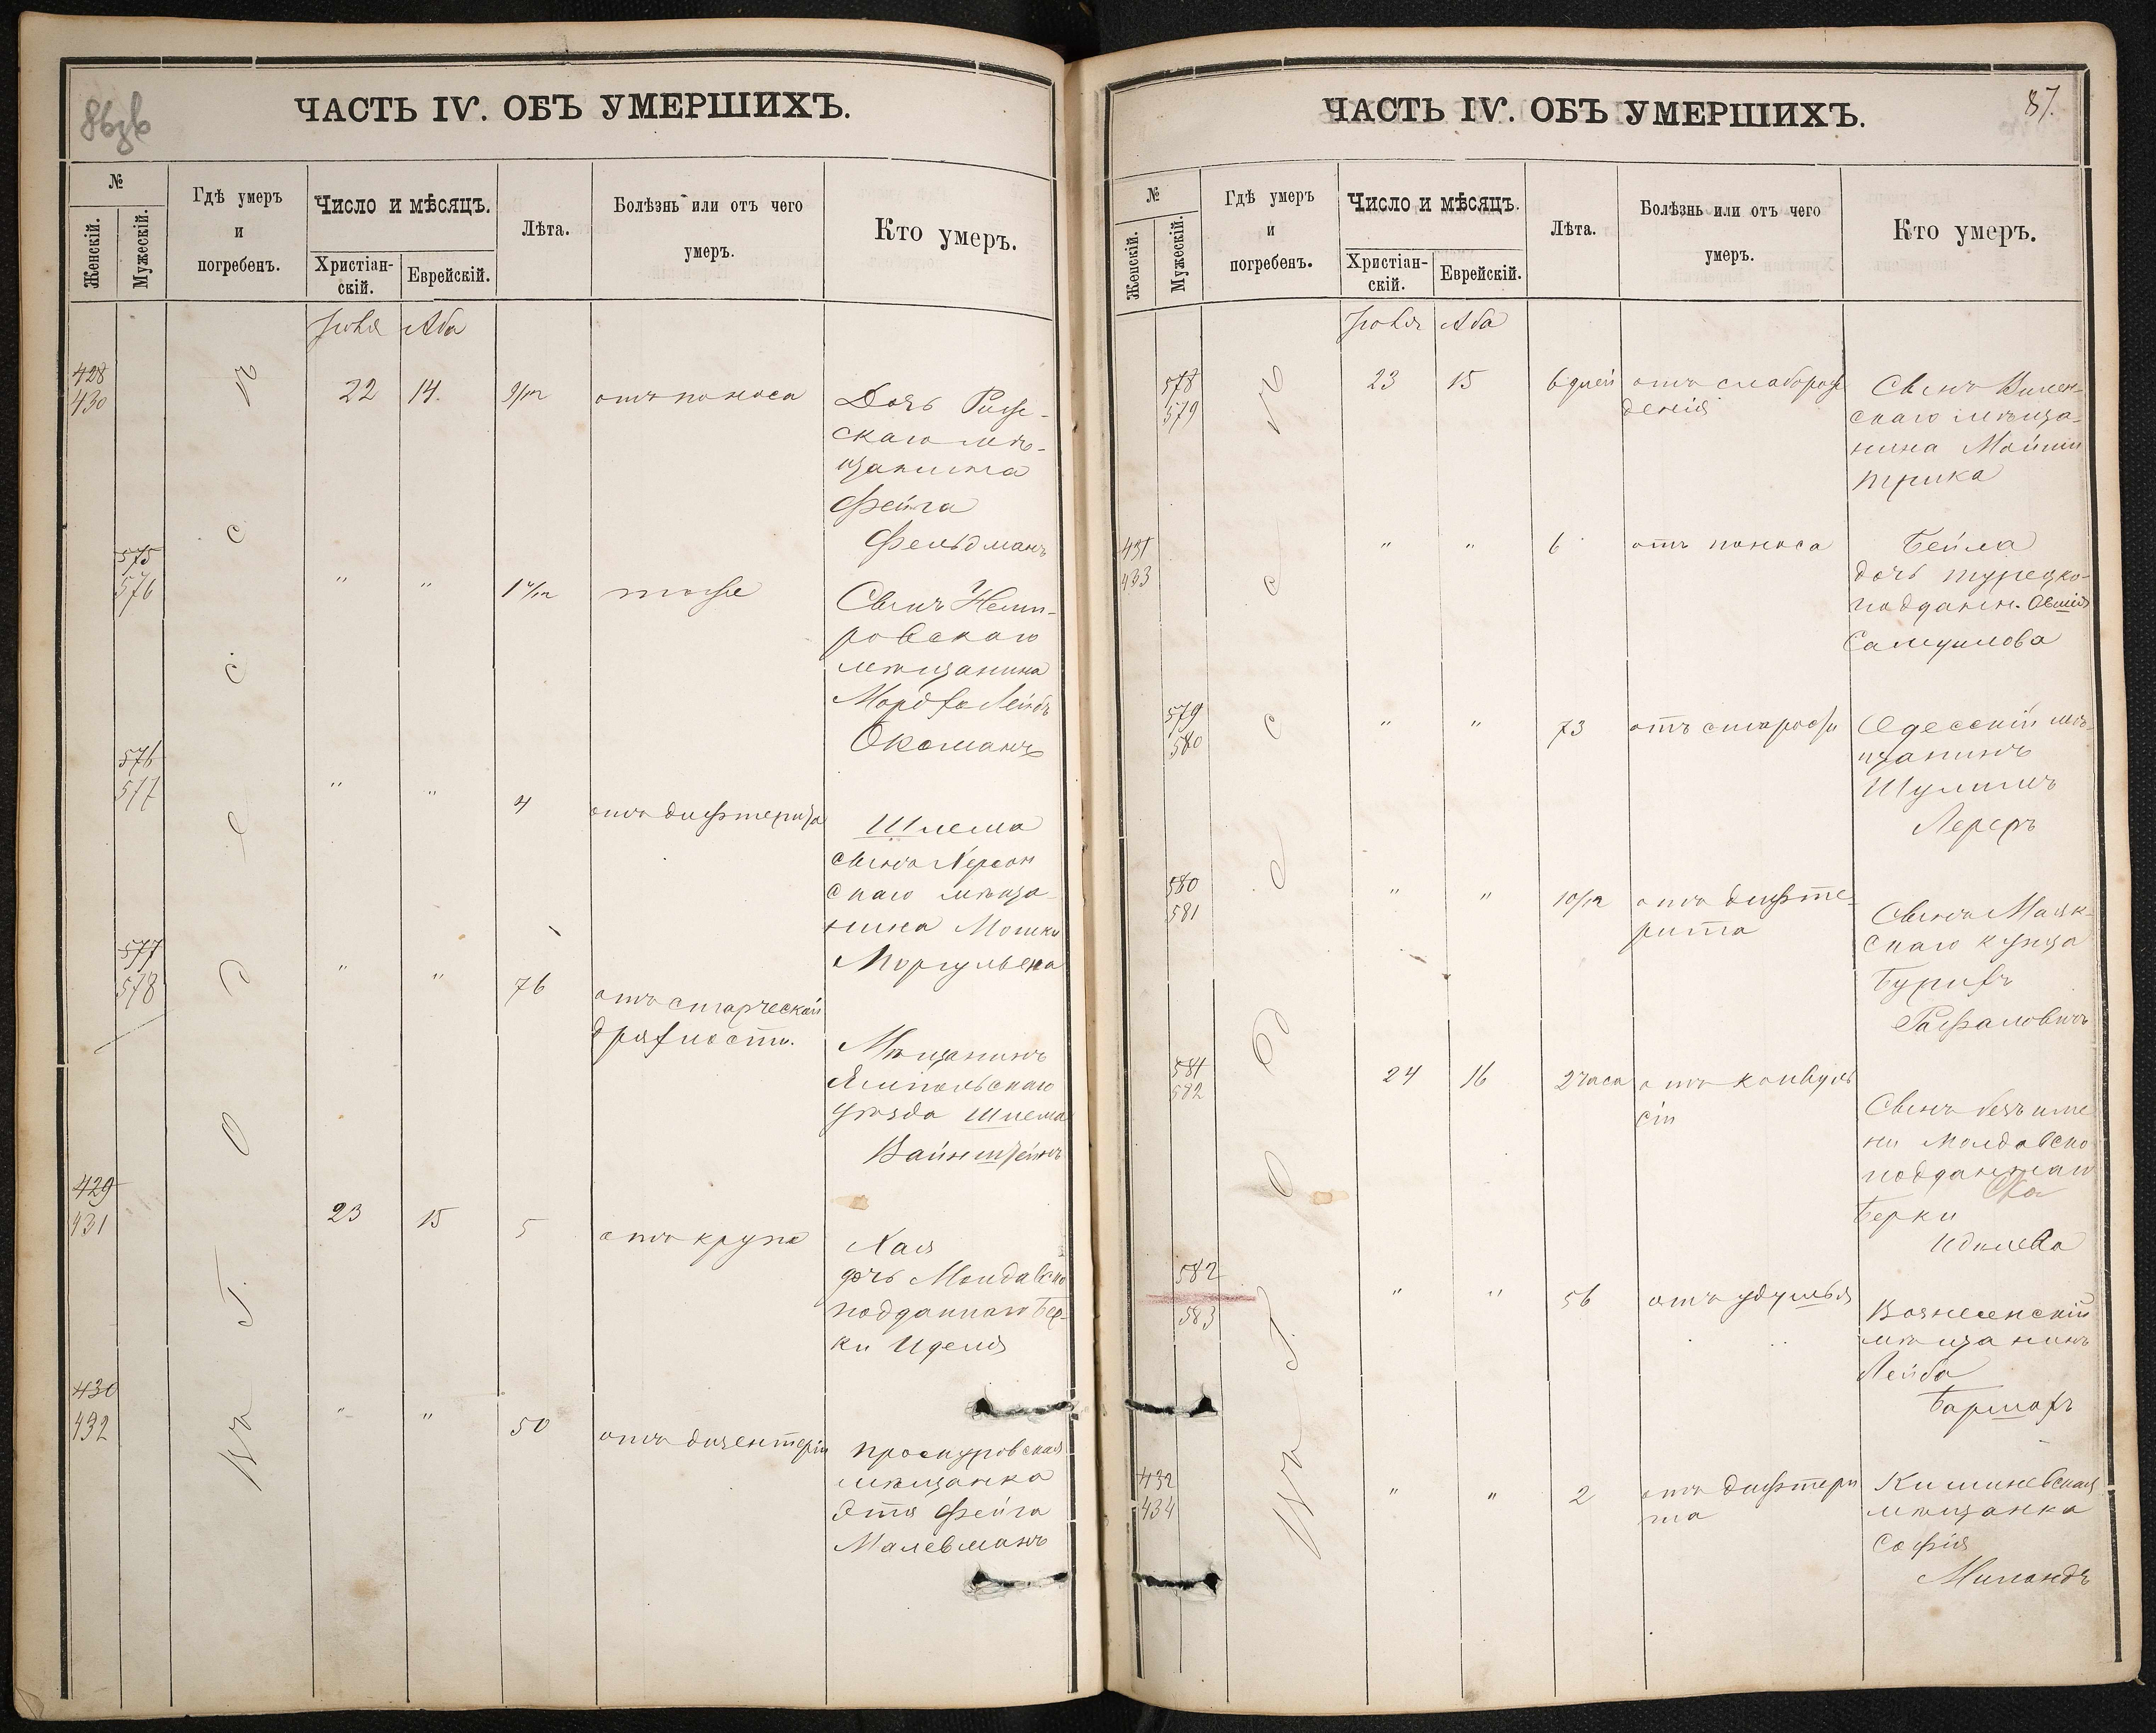 ЧАСТЬ IV. ОБЪ УМЕРШИХЪ.
№
Женскій.
Мужескій.
Гдѣ умеръ
и
погребенъ.
Число и мѣсяцъ.
Христіан-
скій.
Еврейскій.
Лѣта.
Болѣзнь или отъ чего
умеръ.
Кто умеръ.
Іюля Аба
428
430
22 14. 9/12 отъ поноса
Дочь
скаго мѣ-
щанина
Фейга
Фельдманъ
575
576
" " тоже
Сынъ Неми-
ровскаго
мѣщанина
Мордко Лейбъ
Оксманъ
576
577
" " 4 отъ дифтерита
Шлема
сынъ Херсон
скаго мѣща-
нина Мошки
Моргулиса
577
578
" " 76 отъ старческой
дряхлости.
Мѣщанинъ
Ямпольскаго
уѣзда Шлема
Вайнштейнъ
429
431
23 15 5 отъ крупа
Хая
дочь Молдавско
подданнаго Бер-
ки Иделя
430
432
" " 50 отъ дизентеріи
Проскуровская
мѣщанка
Этя Фейга
Малевманъ
Въ г. Одессѣ
ЧАСТЬ IV. ОБЪ УМЕРШИХЪ.
87.
№
Женскій.
Мужескій.
Гдѣ умеръ
и
погребенъ.
Число и мѣсяцъ.
Христіан-
скій.
Еврейскій.
Лѣта.
Болѣзнь или отъ чего
умеръ.
Кто умеръ.
Іюля Аба
578
579
23 15 6 дней отъ слаборож
денія
Сынъ Вилен-
скаго мѣща-
нина
Трика
431
433
" " 6 отъ поноса
Бейла
дочь турецко-
поддан.
Самуилова
579
580
" " 73 отъ старости
Одесскій мѣ-
щанинъ
Шулимъ
Лереръ
580
581
" " 10/12 отъ дифте-
рита
Сынъ Маяк-
скаго купца
Бурихъ
Рафаловичъ
581
582
24 16 2 часа отъ конвуль
сіи
Сынъ безъ име
ни Молдавско
подданнаго
Берки
Иделева
582
583
" " 56 отъ удушья
Вознесенскій
мѣщанинъ
Лейба
Бармахъ
432
434
" " 2 отъ дифтери
та
Кишиневская
мѣщанка
Софія
Миландъ
Въ г. Одессѣ